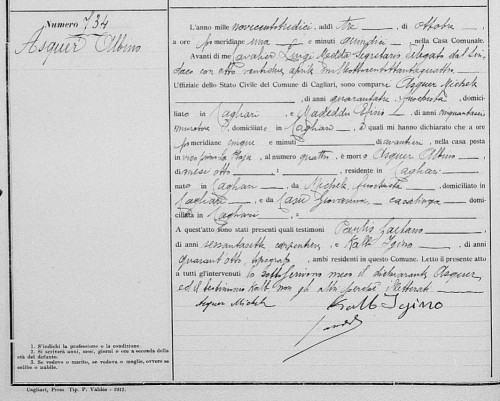 Numero 734
Asquer Albino
L'anno mille novecentotredici, addì tre, di Ottobre
a ore pomeridiane una e minuti quindici, nella Casa Comunale.
Avanti di me Cavalier Luigi Medda Segretario delegato dal Sin-
daco con atto ventidue aprile millenovecento
Uffiziale dello Stato Civile del Comune di Cagliari, sono comparsi Asquer Michele
, di anni quarantatre, fuochista, domici-
liato in Cagliari e Madeddu Efisio, di anni cinquantasei
muratore, domiciliato in Cagliari, i quali mi hanno dichiarato che a ore
pomeridiane cinque e minuti di avantieri, nella casa posta
in vico al numero quattro, è morto Asquer Albino
di mesi otto, residente in Cagliari
nato in Cagliari, da Michele, fuochista, domiciliato in
Cagliari, e da Casu Giovanna, casalinga domi-
ciliata in Cagliari
A quest'atto sono stati presenti quali testimoni Gaetano
di anni sessantasette, carpentiere, e Kalb Igino, di anni
quarantotto, tipografo, ambi residenti in questo Comune. Letto il presente atto
a tutti gl'intervenuti lo sottoscrivono meco il dichiarante Asquer
ed il testimonio Kalb non gli altri perché illetterati
Asquer Michele
Kalb Igino
1. S'indichi la professione o la condizione.
2. Si scriverà anni, mesi, giorni o ore a seconda della
età del defunto.
3. Se vedovo o marito, se vedova o moglie, ovvero se
celibe o nubile.
Cagliari, Prem. Tip. P. Valdès - 1912.